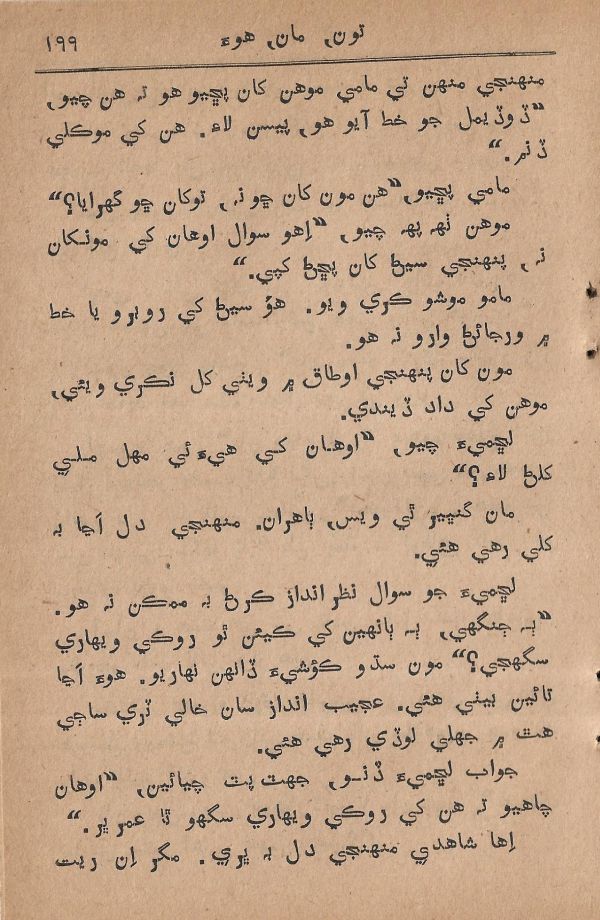 تون, مان, هوءَ ١٩٩
منهنجي منهن تي مامي موهن کان پڇيو هو ته هن چيو,
”ڏوڏيمل جو خط آيو هو, پيسن لاءِ. هن کي موڪلي
ڏنم.“
مامي پڇيو, ”هن مون کان ڇو نه, توکان ڇو گهرايا؟“
موهن ٺهه پهه چيو, ”اِهو سوال اوهان کي مونکان
نه, پنهنجي سيڻ کان پڇڻ کپي.“
مامو موشو ڪري ويو. هوُ سيڻ کي روبرو يا خط
۾ ورجائڻ وارو نه هو.
مون کان پنهنجي اوطاق ۾ ويٺي کل نڪري ويئي,
موهن کي داد ڏيندي.
لڇميءَ چيو, ”اوهان کي هيءَ ئي مهل ملي
کلڻ لاءِ؟“
مان گنڀير ٿي ويس, ٻاهران. منهنجي دل اَڃا به
کلي رهي هئي.
لڇميءَ جو سوال نظرانداز ڪرڻ به ممڪن نه هو.
”ٻه ڄنگهي, ٻه ٻانهين کي ڪيئن ٿو روڪي ويهاري
سگهجي؟“ مون سڌو ڪؤشيءَ ڏانهن نهاريو. هوءَ اَڃا
تائين بيٺي هئي. عجيب انداز سان خالي ٽري ساڄي
هٿ ۾ جهلي لوڏي رهي هئي.
جواب لڇميءَ ڏنو, جهٽ پٽ چيائين, ”اوهان
چاهيو ته هن کي روڪي ويهاري سگهو ٿا عمر ڀر.“
اِها شاهدي منهنجي دل به ڀري. مگر اِن ريت